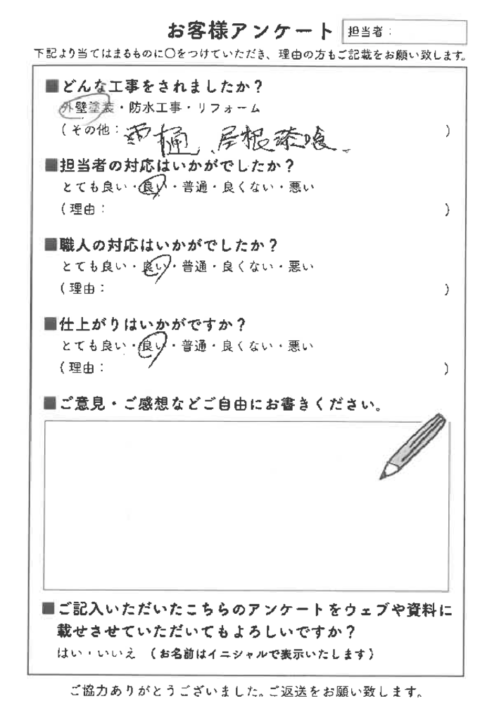 お客様アンケート
担当者：
下記より当てはまるものに○をつけていただき、理由の方もご記載をお願い致します。
■どんな工事をされましたか？
外壁塗装・防水工事・リフォーム
（その他：雨樋、屋根漆喰、）
■担当者の対応はいかがでしたか？
とても良い・良い・普通・良くない・悪い
（理由：）
■職人の対応はいかがでしたか？
とても良い・良い・普通・良くない・悪い
（理由：）
■仕上がりはいかがですか？
とても良い・良い・普通・良くない・悪い
（理由：）
■ご意見・ご感想などご自由にお書きください。
■ご記入いただいたこちらのアンケートをウェブや資料に
載せさせていただいてもよろしいですか？
はい・いいえ （お名前はイニシャルで表示いたします）
ご協力ありがとうございました。ご返送をお願い致します。